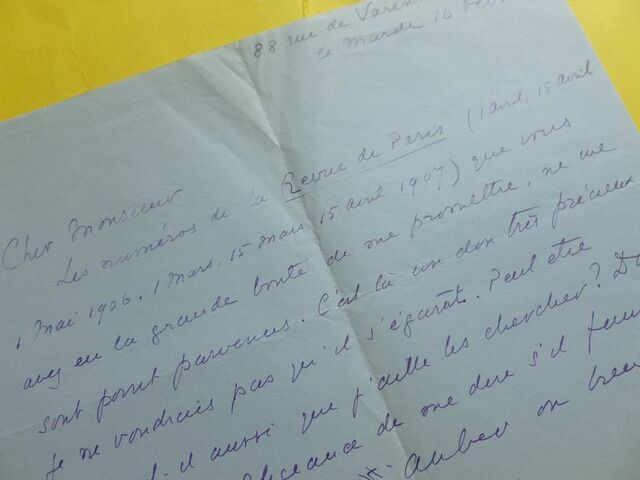 88 rue de Varenn
ce Mardi 16
Cher Monsieur
Les numéros de la Revue de Paris (1 avril, 15 avril
1 Mai 1906. 1 Mars, 15 Mars, 15 avril 1907) que vous
avez eu la grande bonté de me promettre, ne me
sont point parvenus. C'est là un don très précieux
Je ne voudrais pas qu'il s'égarât. Peut être
il aussi que j'aille les chercher? D
de me dire s'il fau
Auber ou bien